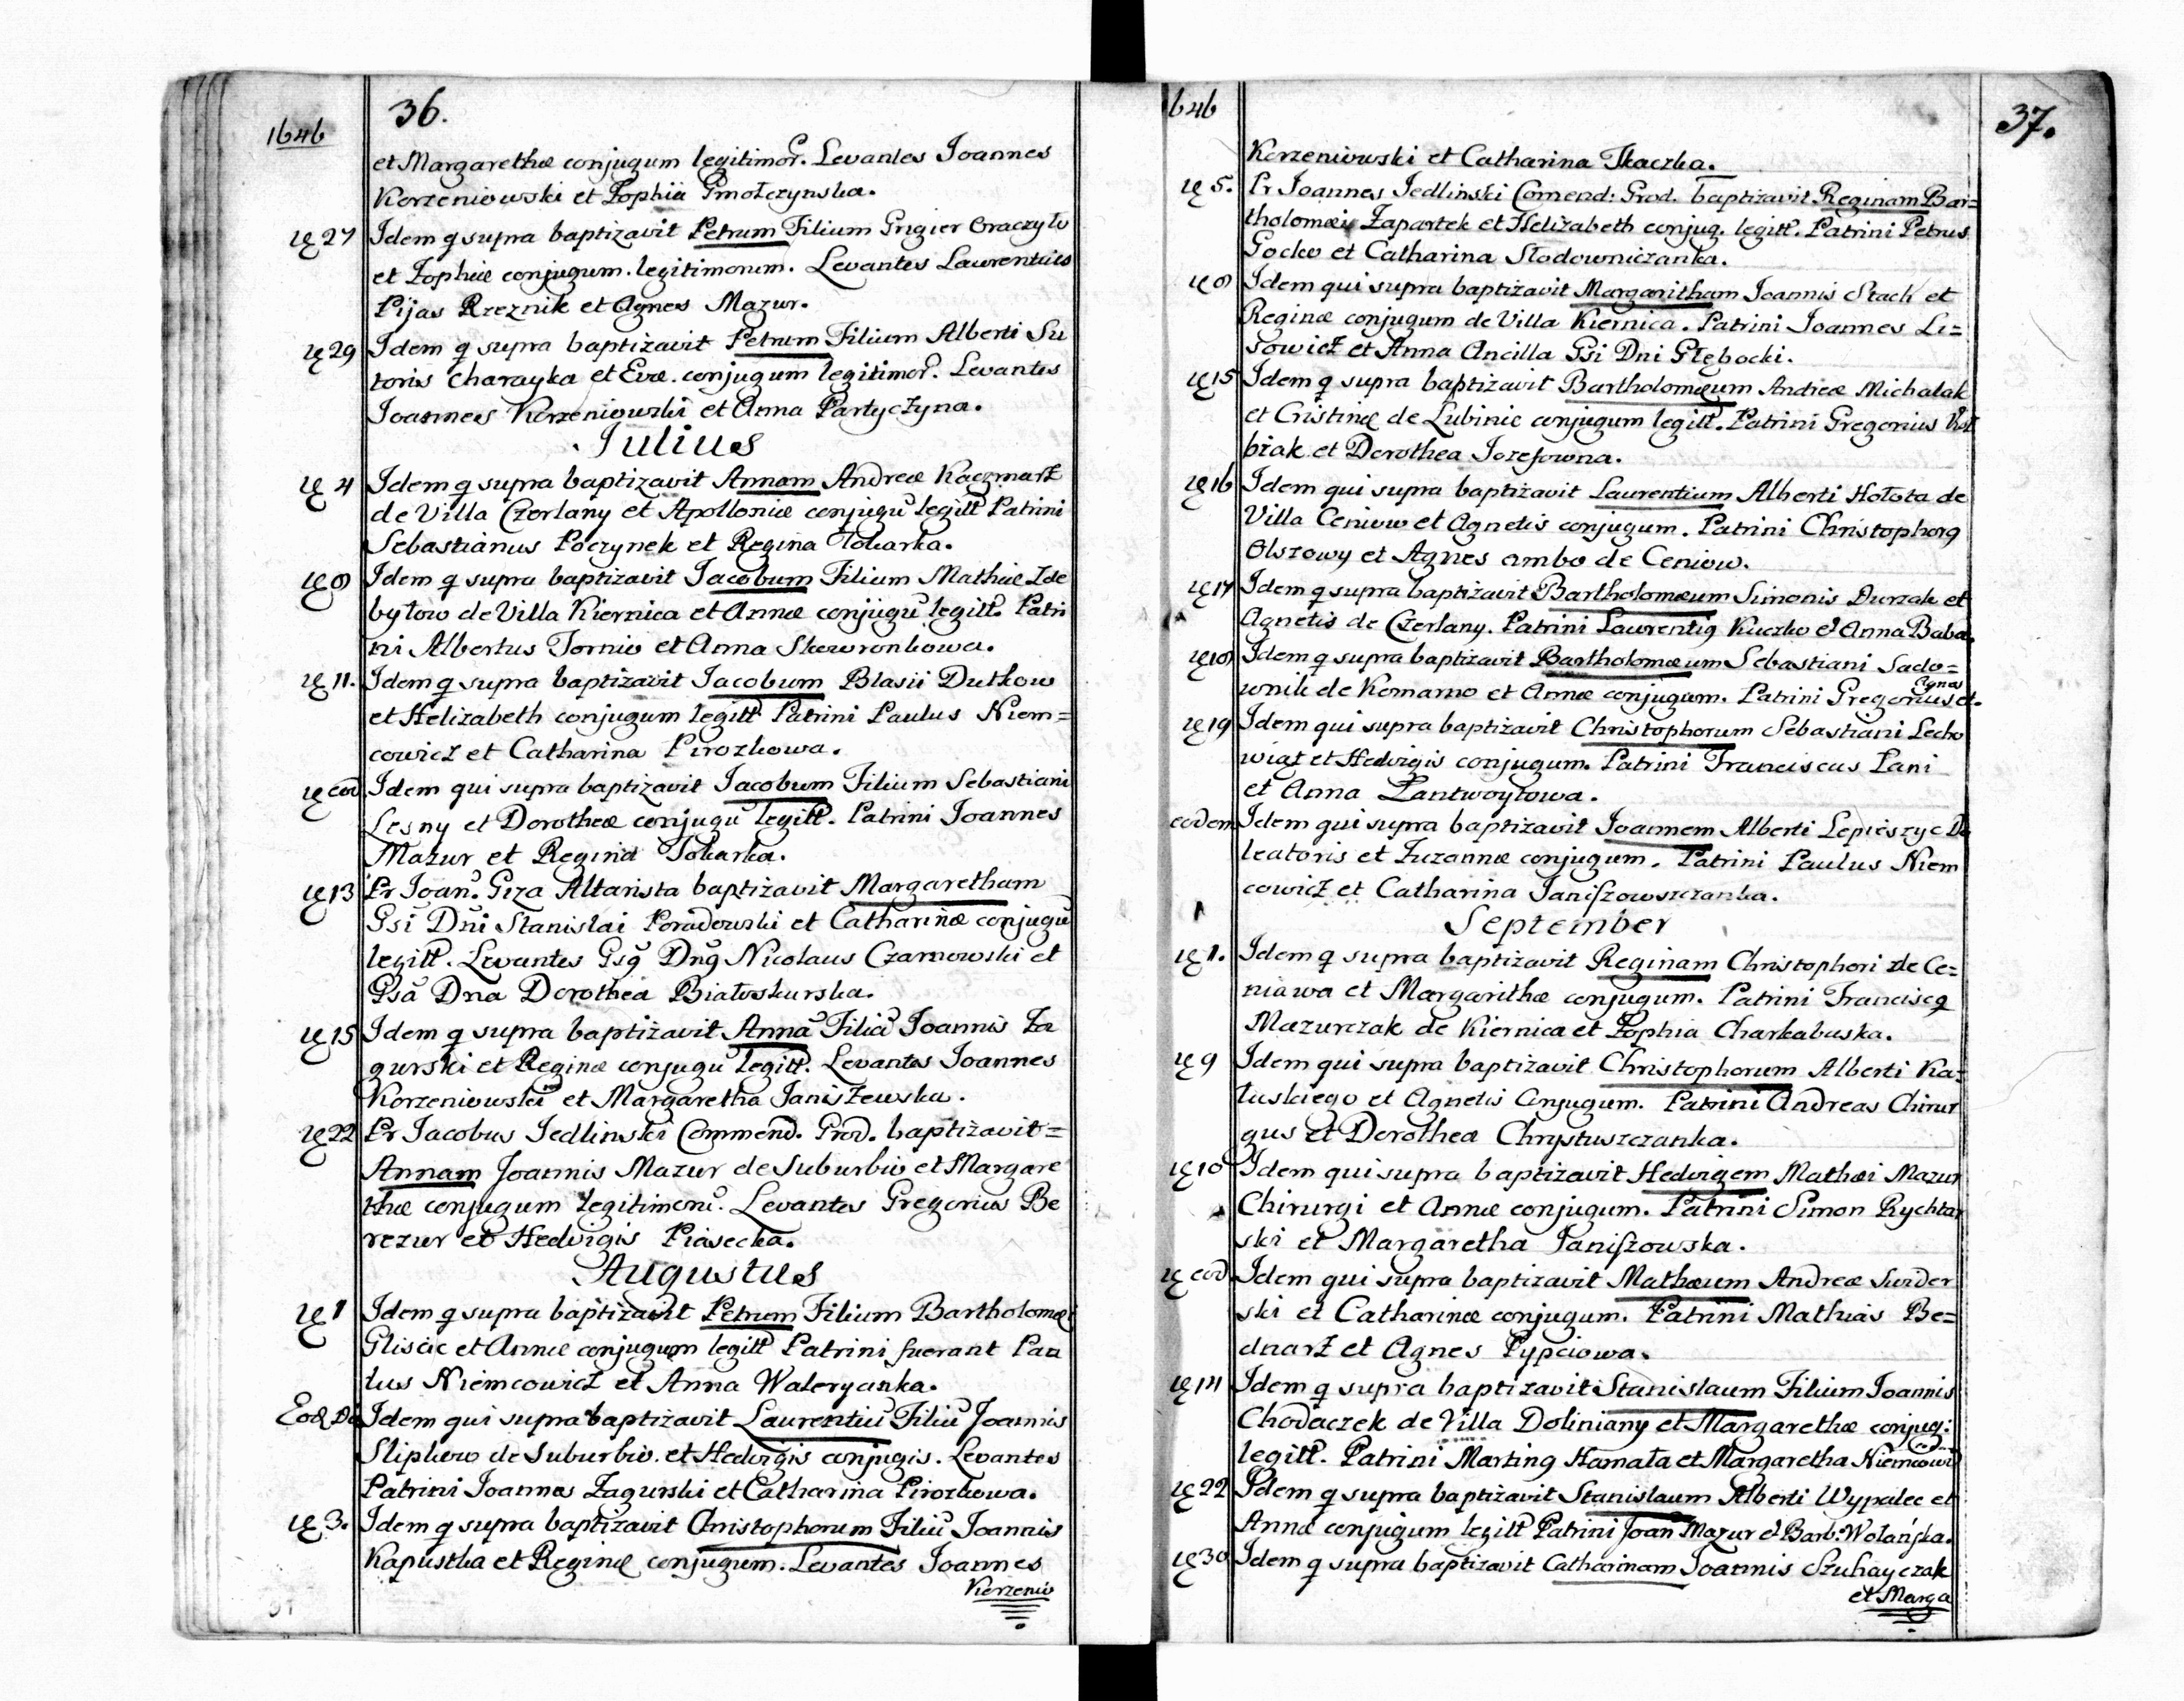 1646
36.
et Margarethæ conjugum legitimor. Levantes Joannes
Korzeniowski et Zophia Gmołczynska.
27 Idem q supra baptizavit Petrum Filium Grigier Oraczyło
et Zophiæ conjugum legitimorum. Levantes Laurentius
Pijas Rzeznik et Agnes Mazur.
29 Idem q supra baptizavit Petrum Filium Alberti Su
toris Charayka et Evæ conjugum legitimor. Levantes
Joannes Korzeniowski et Anna Partyczyna.
Julius
4 Idem q supra baptizavit Annam Andreæ Kaczmarz
de Villa Czerlany et Apolloniæ conjugu legitt Patrini
Sebastianus Poczynek et Regina Tokarka.
8 Idem q supra baptizavit Jacobum Filium Mathiæ Zde
bylow de Villa Kiernica et Annæ conjugu legitt. Patri
ni Albertus Tornio et Anna Skowronkowa.
11. Idem q supra baptizavit Jacobum Blasii Dutkow
et Helizabeth conjugum legitt Patrini Paulus Niem=
cowicz et Catharina Pirozkowa.
eod. Idem qui supra baptizavit Jacobum Filium Sebastiani
Lesny et Dorotheæ conjugu legitt. Patrini Joannes
Mazur et Regina Tokarka.
13 Pr Joan. Giza Altarista baptizavit Margaretham
Gsi Dni Stanislai Poradowski et Catharinæ conjugu
legitt. Levantes Gsq Dnq Nicolaus Czarnowski et
Gsa Dna Dorothea Białoskurska.
15 Idem q supra baptizavit Anna Filia Joannis Za
gurski et Reginæ conjugu legitt. Levantes Joannes
Korzeniowski et Margaretha Janiszewska.
22 Pr Jacobus Jedlinski Commend. Grod. baptizavit=
Annam Joannis Mazur de Suburbio et Margare
thæ conjugum legitimoru. Levantes Gregorius Be
rezur et Hedvigis Piasecka.
Augustus
1 Idem q supra baptizavit Petrum Filium Bartholomæi
Gliscic et Annæ conjugum legitt Patrini fuerant Pau
lus Niemcowicz et Anna Waleryanka.
Eod Di Idem qui supra baptizavit Laurentiu Filiu Joannis
Slipkow de Suburbio et Hedvigis conjugis. Levantes
Patrini Joannes Zagurski et Catharina Pirozkowa.
3. Idem q supra baptizavit Christophorum Filiu Joannis
Kapustka et Reginæ conjugum. Levantes Joannes
Korzenio
646
37.
Korzeniowski et Catharina Tkaczka.
5. Pr Joannes Jedlinski Comend: Grod. baptizavit Reginam Bar=
tholomæi Zapartek et Helizabeth conjug. legitt. Patrini Petrus
Gocko et Catharina Słodowniczanka.
8 Idem qui supra baptizavit Margaritham Joannis Stach et
Reginæ conjugum de Villa Kiernica. Patrini Joannes Li=
sowicz et Anna Ancilla Gsi Dni Głębocki.
15 Idem q supra baptizavit Bartholomæum Andreæ Michalak
et Cristinæ de Lubinie conjugum legitt. Patrini Gregorius
biak et Dorothea Jozefowna.
16 Idem qui supra baptizavit Laurentium Alberti Hołota de
Villa Ceniow et Agnetis conjugum. Patrini Christophorq
Olszowy et Agnes ambo de Ceniow.
17 Idem q supra baptizavit Bartholomæum Simonis Durzak et
Agnetis de Czerlany. Patrini Laurentiq Kuczko et Anna Baba.
18 Idem q supra baptizavit Bartholomæum Sebastiani Sado=
wnik de Komarno et Annæ conjugum. Patrini Gregorius et Agnes
19 Idem qui supra baptizavit Christophorum Sebastiani Lecho
wiąz et Hedvigis conjugum. Patrini Franciscus Pani
et Anna Lantwoytowa.
eodem Idem qui supra baptizavit Joannem Alberti Lepieszyc Do
leatoris et Zuzannæ conjugum. Patrini Paulus Niem
cowicz et Catharina Janiszowszczanka.
September
1. Idem q supra baptizavit Reginam Christophori de Ce=
niawa et Margarithæ conjugum. Patrini Franciscq
Mazurczak de Kiernica et Zophia Charkabuska.
9 Idem qui supra baptizavit Christophorum Alberti Ka=
łuskiego et Agnetis Conjugum. Patrini Andreas Chirur
gus et Dorothea Chrystuszczanka.
10 Idem qui supra baptizavit Hedvigem Mathæi Mazur
Chirurgi et Annæ conjugum. Patrini Simon Rychtar
ski et Margaretha Janiszowska.
eod Idem qui supra baptizavit Mathæum Andreæ Swider
ski et Catharinæ conjugum. Patrini Mathias Be=
dnarz et Agnes Pypciowa.
14 Idem q supra baptizavit Stanislaum Filium Joannis
Chodaczek de Villa Doliniany et Margarethæ conjug:
legitt. Patrini Martinq Hamała et Margaretha Niemcowic
22 Idem q supra baptizavit Stanislaum Alberti Wypalec et
Annæ conjugum legitt Patrini Joan Mazur et Barb: Wolańska.
30 Idem q supra baptizavit Catharinam Joannis Szuhayczak
et Marga